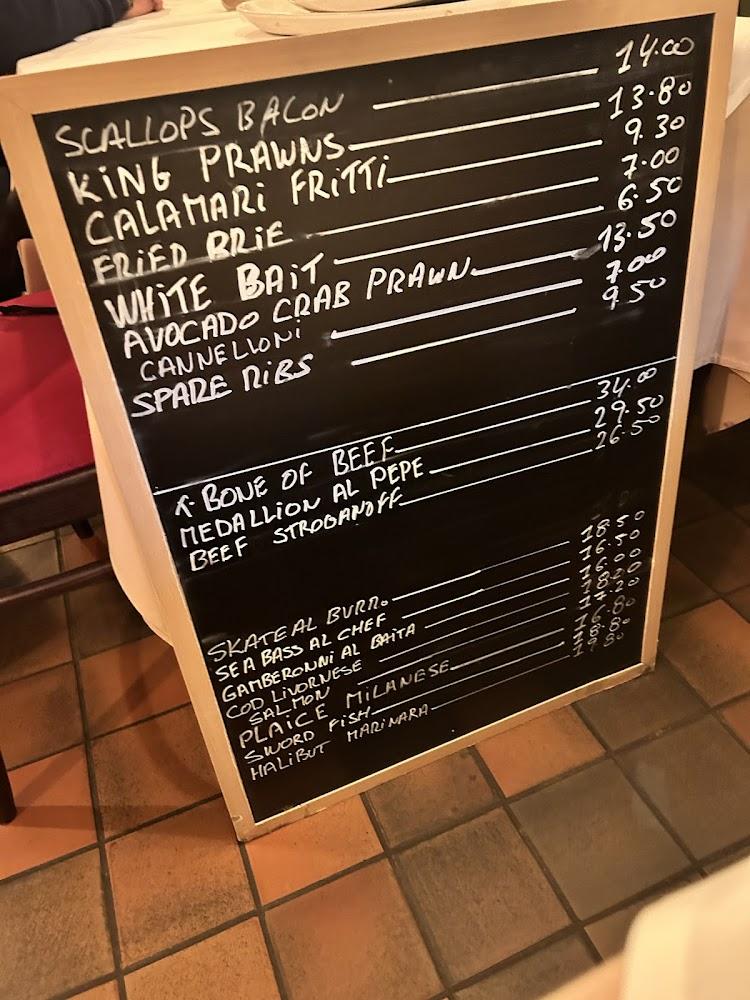 SCALLOPS BACON 14.00
KING PRAWNS 13.80
CALAMARI FRITTI 9.30
FRIED BRIE 7.00
WHITE BAIT 6.50
AVOCADO CRAB PRAWN 13.50
CANNELLONI 7.00
SPARE RIBS 9.50
T-BONE OF BEEF 34.00
MEDALLION AL PEPE 29.50
BEEF STROGANOFF 26.50
SKATE AL BURRO
SEA BASS AL CHEF
GAMBERONNI AL BAITA
COD LIVORNESE
SALMON
PLAICE MILANESE
SWORD FISH
HALIBUT MARINARA